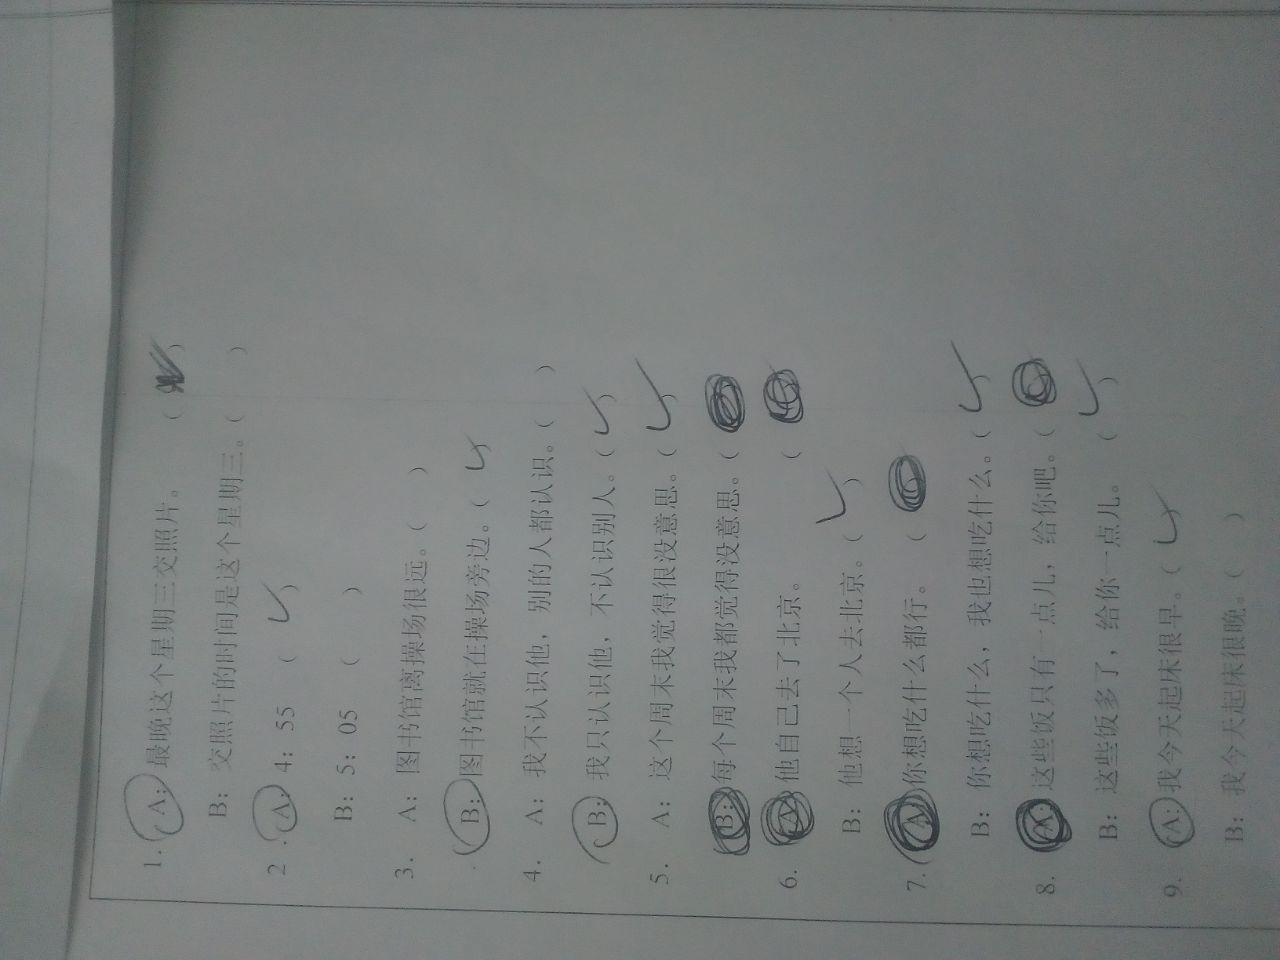 1. A: 最晚这个星期三交照片。 ( ✓ )
B: 交照片的时间是这个星期三。( )
2. A: 4: 55 ( ✓ )
B: 5: 05 ( )
3. A: 图书馆离操场很远。( )
B: 图书馆就在操场旁边。( ✓
4. A: 我不认识他，别的人都认识。( )
B: 我只认识他，不认识别人。( ✓ )
5. A: 这个周末我觉得很没意思。( ✓ )
B: 每个周末我都觉得没意思。(
6. A: 他自己去了北京。 (
B: 他想一个人去北京。( ✓ )
7. A: 你想吃什么都行。 (
B: 你想吃什么，我也想吃什么。( ✓ )
8. A: 这些饭只有一点儿，给你吧。(
B: 这些饭多了，给你一点儿。 ( ✓ )
9. A: 我今天起床很早。( ✓ )
B: 我今天起床很晚。( )